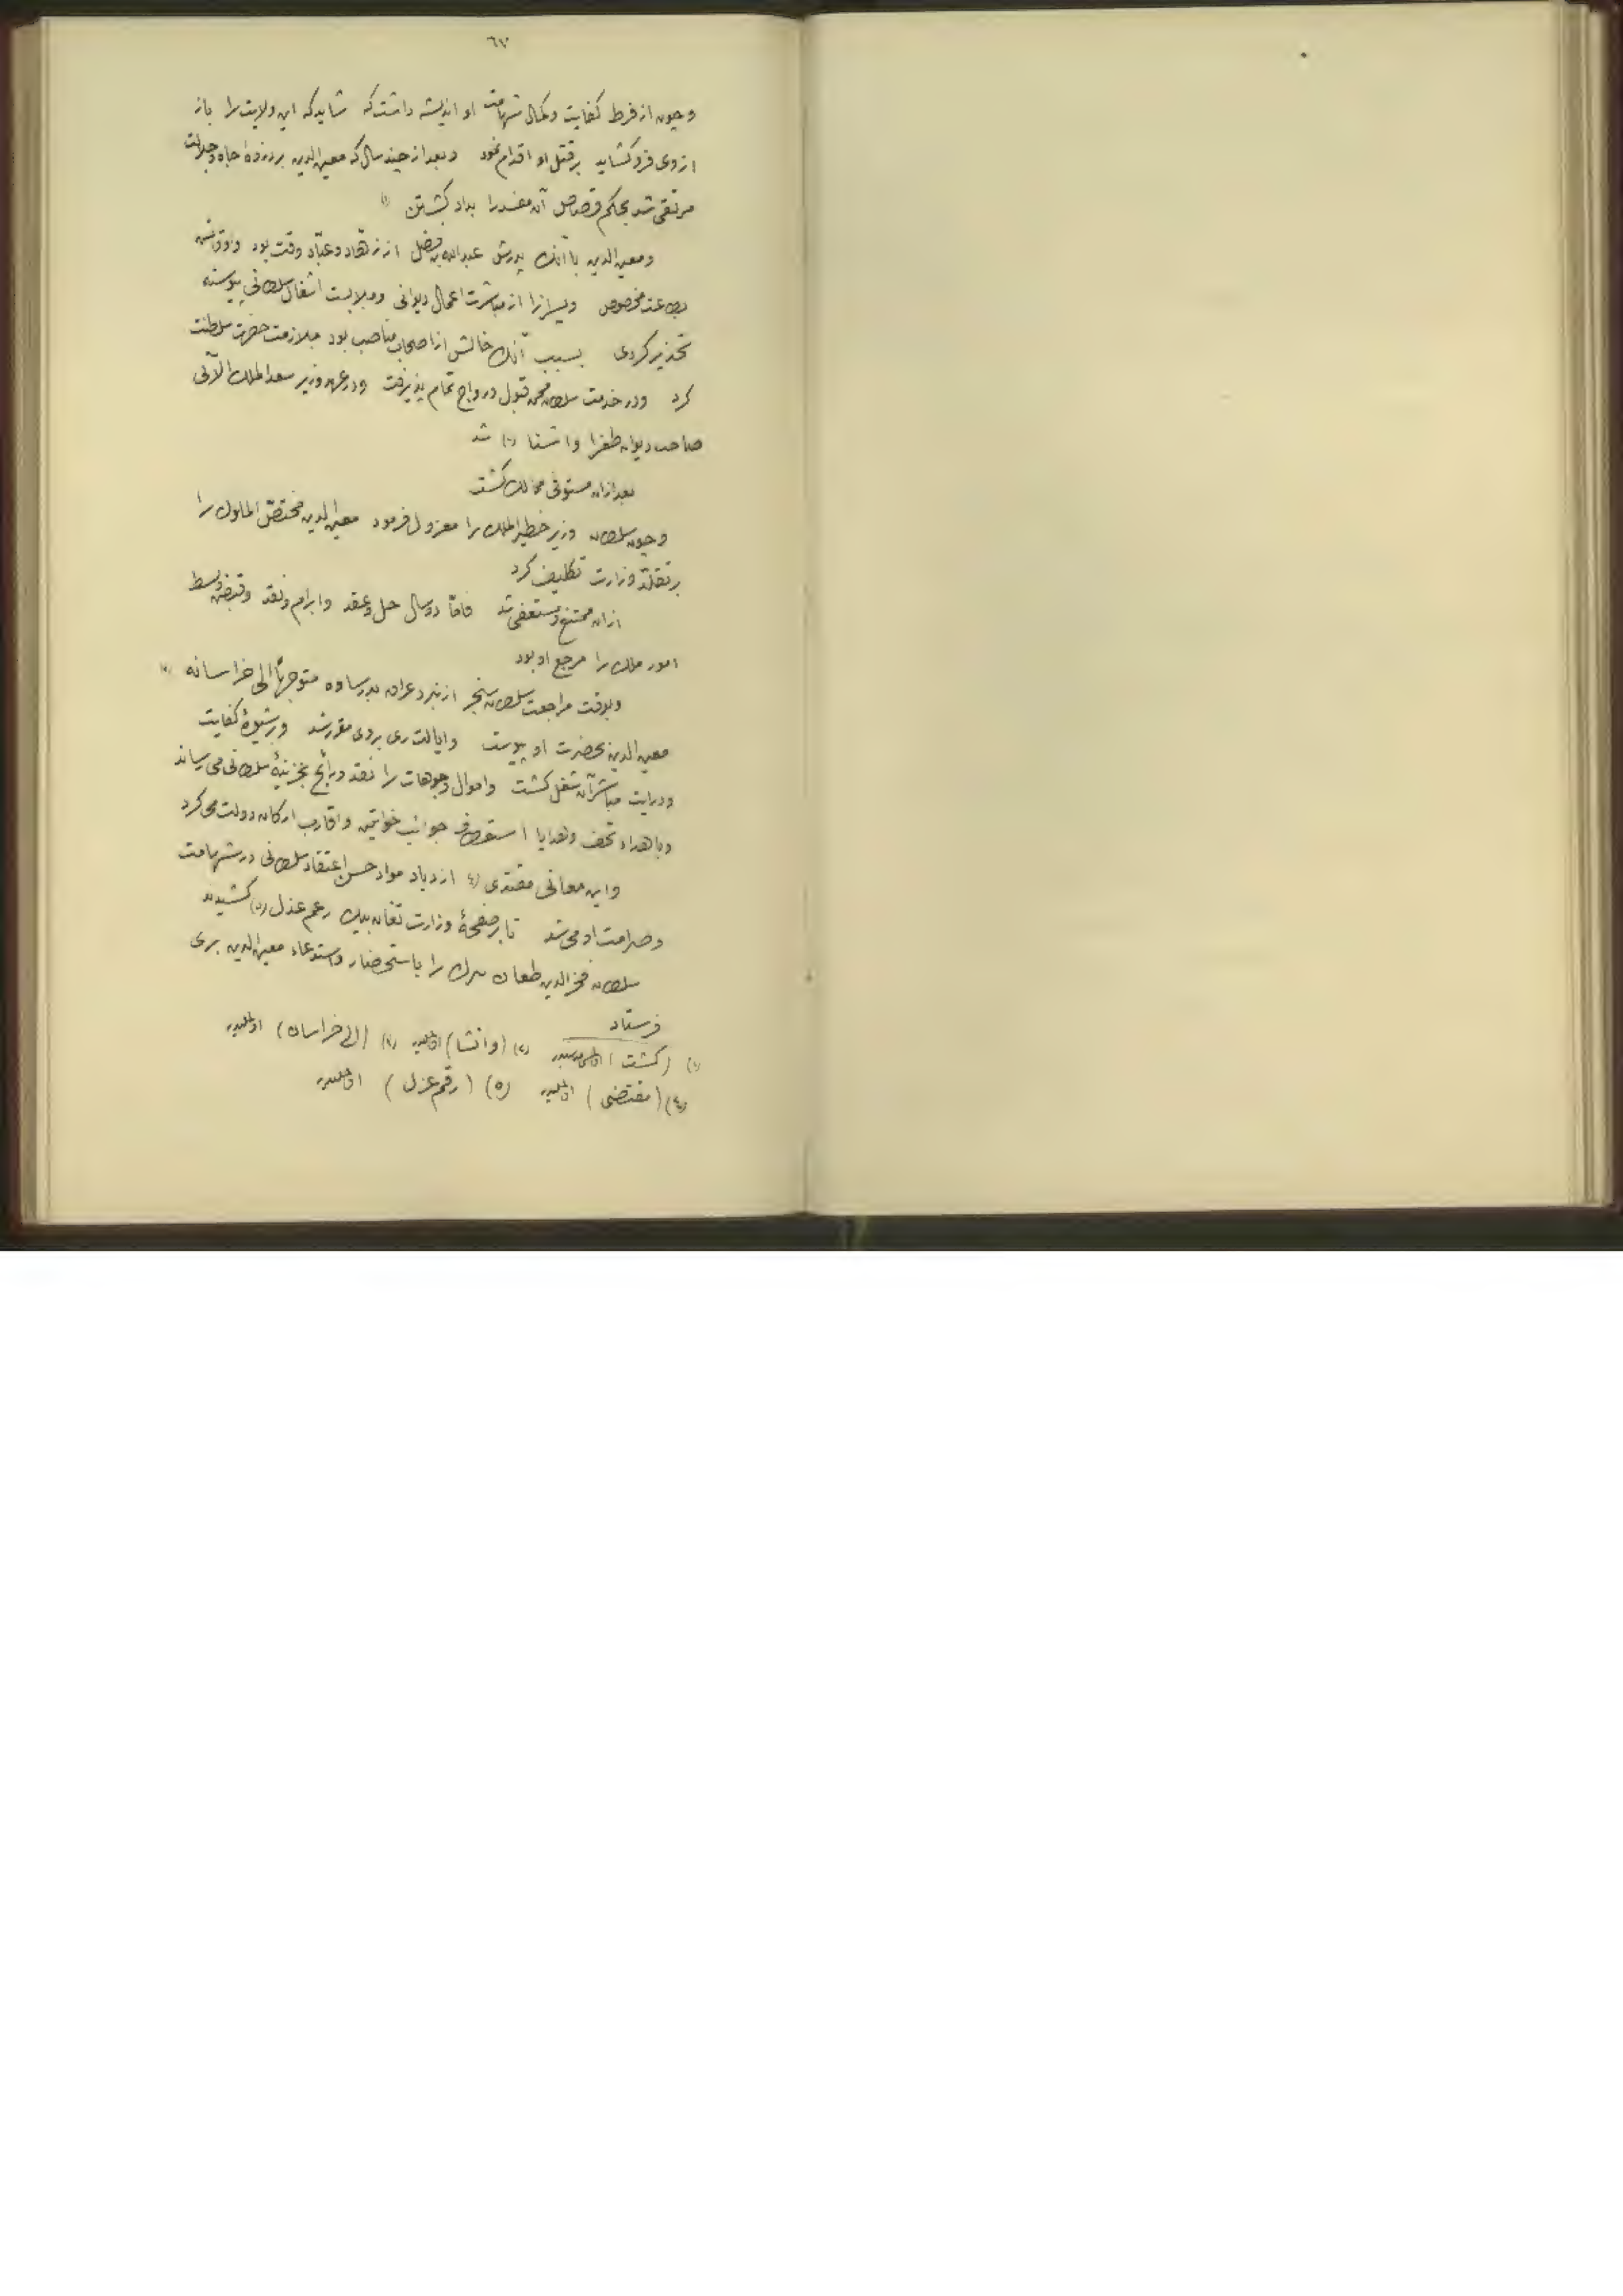 ٦٧
وچون از فرط کفایت وکمال شهامت او اندیشه داشت که شاید که این ولایت را باز
از وی فرو کشاید بر قتل او اقدام نمود وبعد از چند سال که معین الدین بر ذروهٔ جاه وجلالت
مرتقی شد بحکم قصاص آن مفسد را بداد کشتن (١)
ومعین الدین با آنک پدرش عبدالله بن فضل از زهّاد وعبّاد وقت بود واوقاتش
بطاعت مخصوص وپسرانرا از مباشرت اعمال دیوانی وملابست اشغال سلطانی پیوسته
تحذیر کردی بسبب آنک خالش از اصحاب مناصب بود ملازمت حضرت سلطنت
کرد ودر خدمت سلطان محمد قبول ورواج تمام پذیرفت ودر عهد وزیر سعد الملک الآبی
صاحب دیوان طغرا واشتا (٢) شد
بعد ازان مستوفی ممالک کشت
وچون سلطان وزیر خطیر الملک را معزول فرمود معین الدین مختص الملوک را
بر تقلّد وزارت تکلیف کرد
ازان ممتنع ومستعفی شد فامّا دو سال حل وعقد وابرام ونقد وقبض وبسط
امور ملک را مرجع او بود
وبوقت مراجعت سلطان سنجر از نبرد عراق بدر ساوه متوجهاً الی خراسانه (٣)
معین الدین بحضرت او پیوست وایالت ری بر وی مقرر شد وبر شیوهٔ کفایت
ودرایت مباشر آن شغل کشت واموال وجوهات را نقد ورائج بخزینهٔ سلطانی می رساند
وباهداء تحف وهدایا استعطاف جوانب خواتین واقارب ارکان دولت می کرد
واین معانی مقتدی (٤) ازدیاد مواد حسن اعتقاد سلطانی در شهامت
وصرامت او می شد تا بر صفحهٔ وزارت تغان بیک رعم عذل (٥) کشیدند
سلطان فخر الدین طغان یرک را باستحضار واستدعاء معین الدین بری
فرستاد
(١) (کشت) اولمیدر (٢) (وانشا) اولمیدر (٣) (الی خراسان) اولمیدر
(٤) (مقتضی) اولمیدر (٥) (رقم عزل) اولمیدر